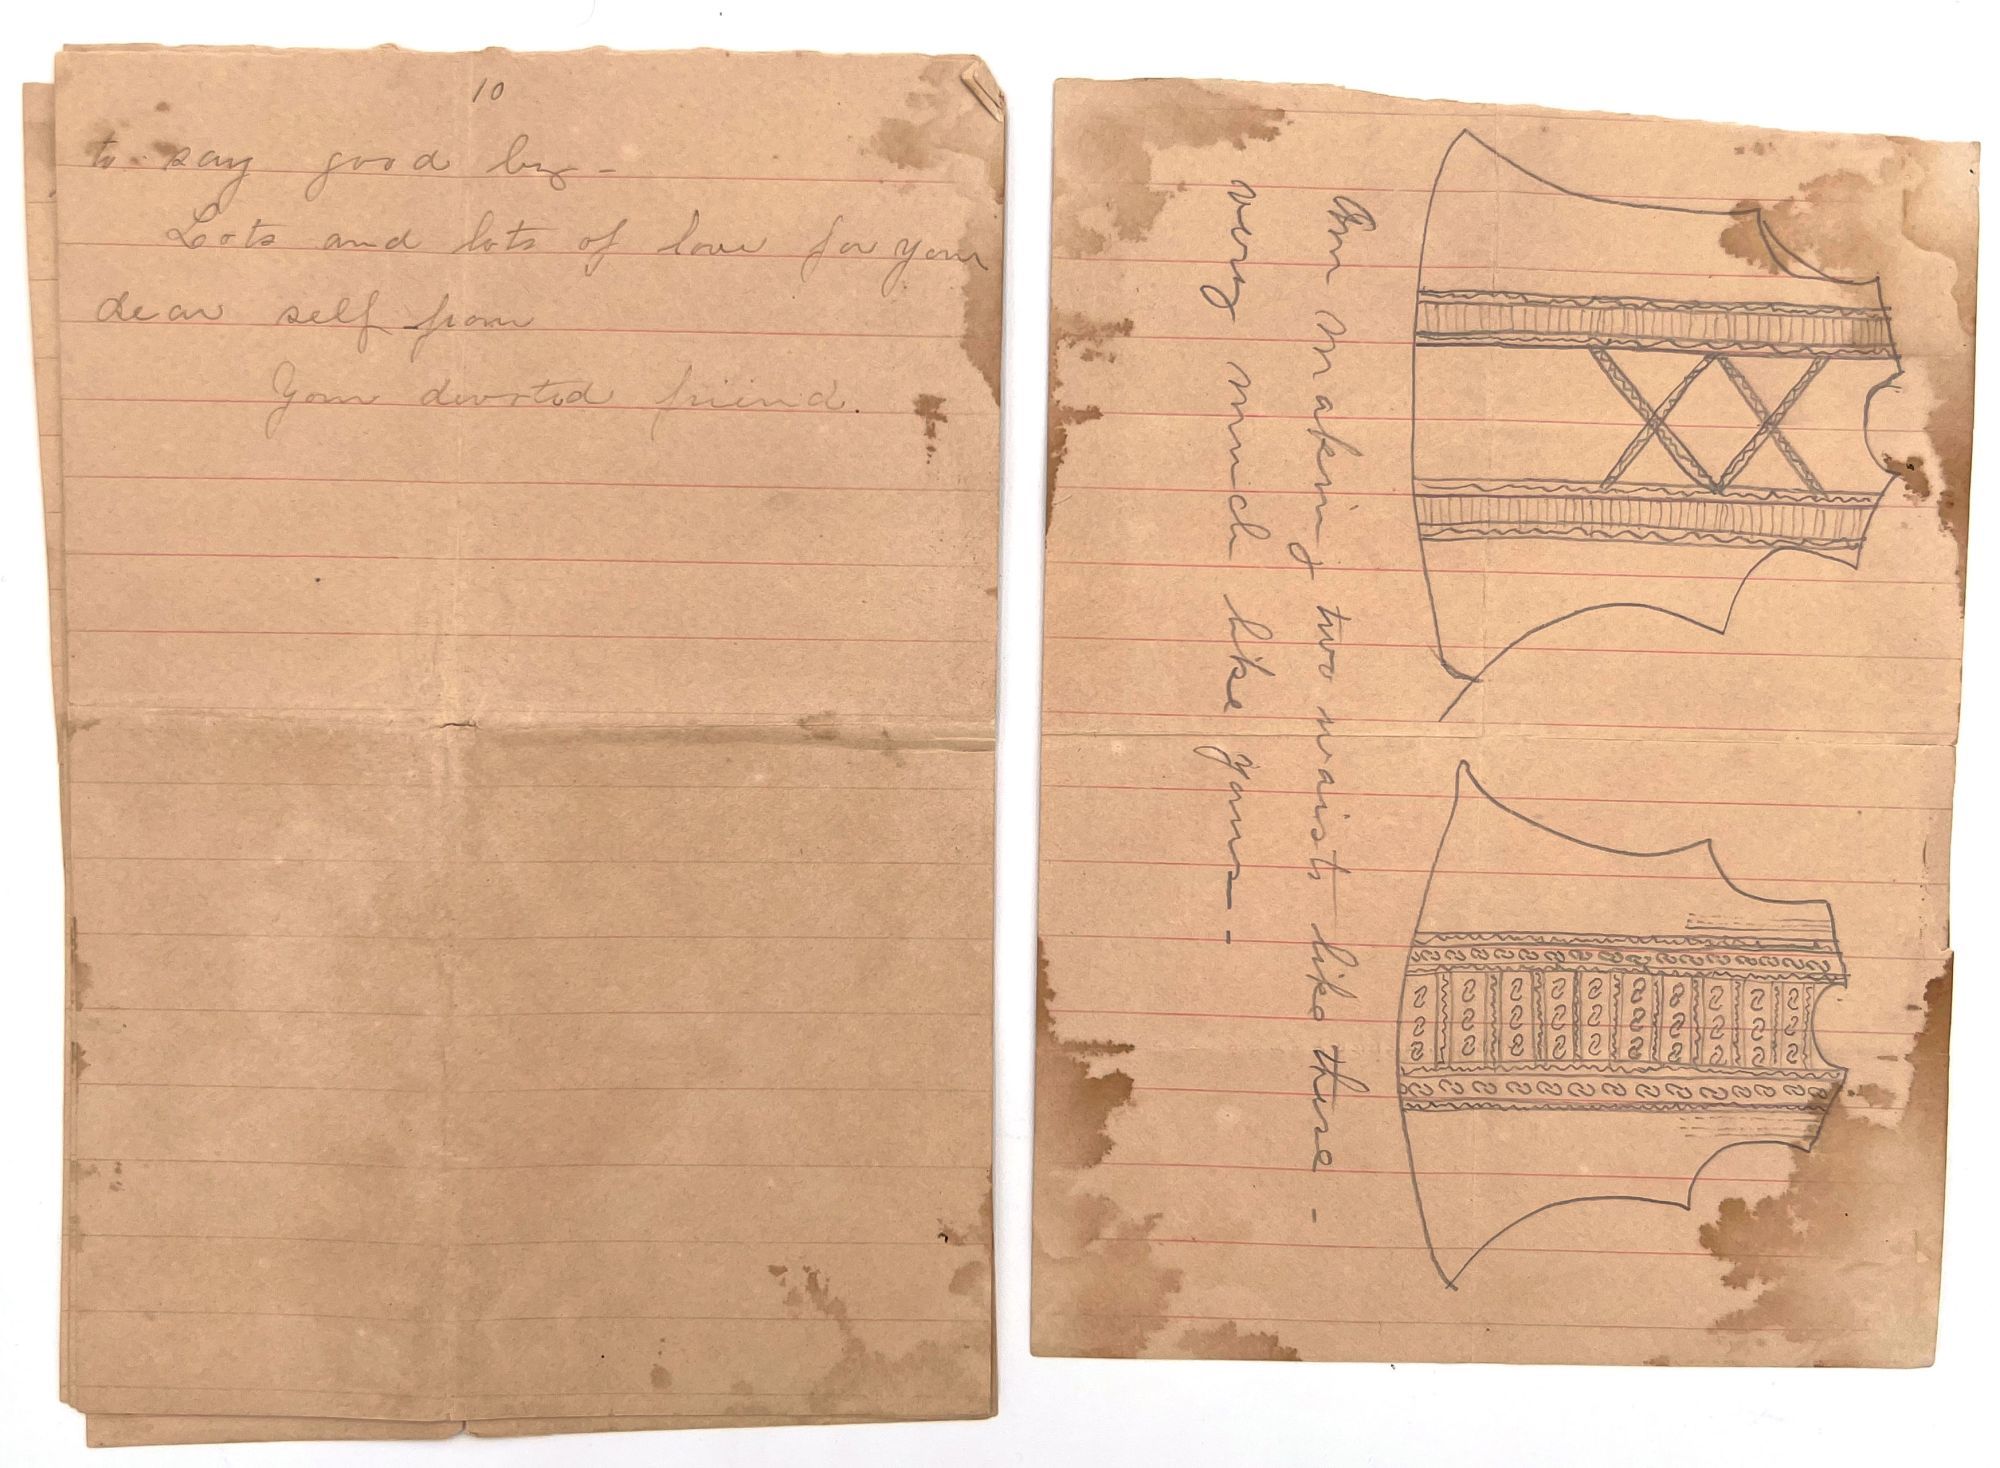 10
to say good by -
Lots and lots of love for your
dear self from
Your devoted friend.
Am making two waists like these -
very much like yours - -